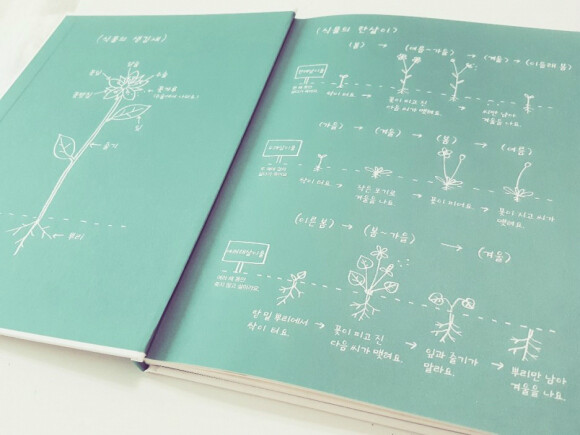 (식물의 생김새)
암술
꽃잎
수술
꽃받침
잎
줄기
뿌리
(식물의 한살이)
(봄) → (여름~가을) → (겨울) → (이듬해 봄)
한해살이풀
싹이 터요.
꽃이 피고 진
다음 씨가 맺혀요.
씨만 남아
겨울을 나요.
(가을) → (겨울) → (봄) → (여름)
두해살이풀
싹이 터요.
작은 포기로
겨울을 나요.
꽃이 피어요.
꽃이 지고 씨가
맺혀요.
(이른 봄) → (봄~가을) → (겨울)
여러해살이풀
땅 밑 뿌리에서
싹이 터요.
꽃이 피고 진
다음 씨가 맺혀요.
잎과 줄기가
말라요.
뿌리만 남아
겨울을 나요.